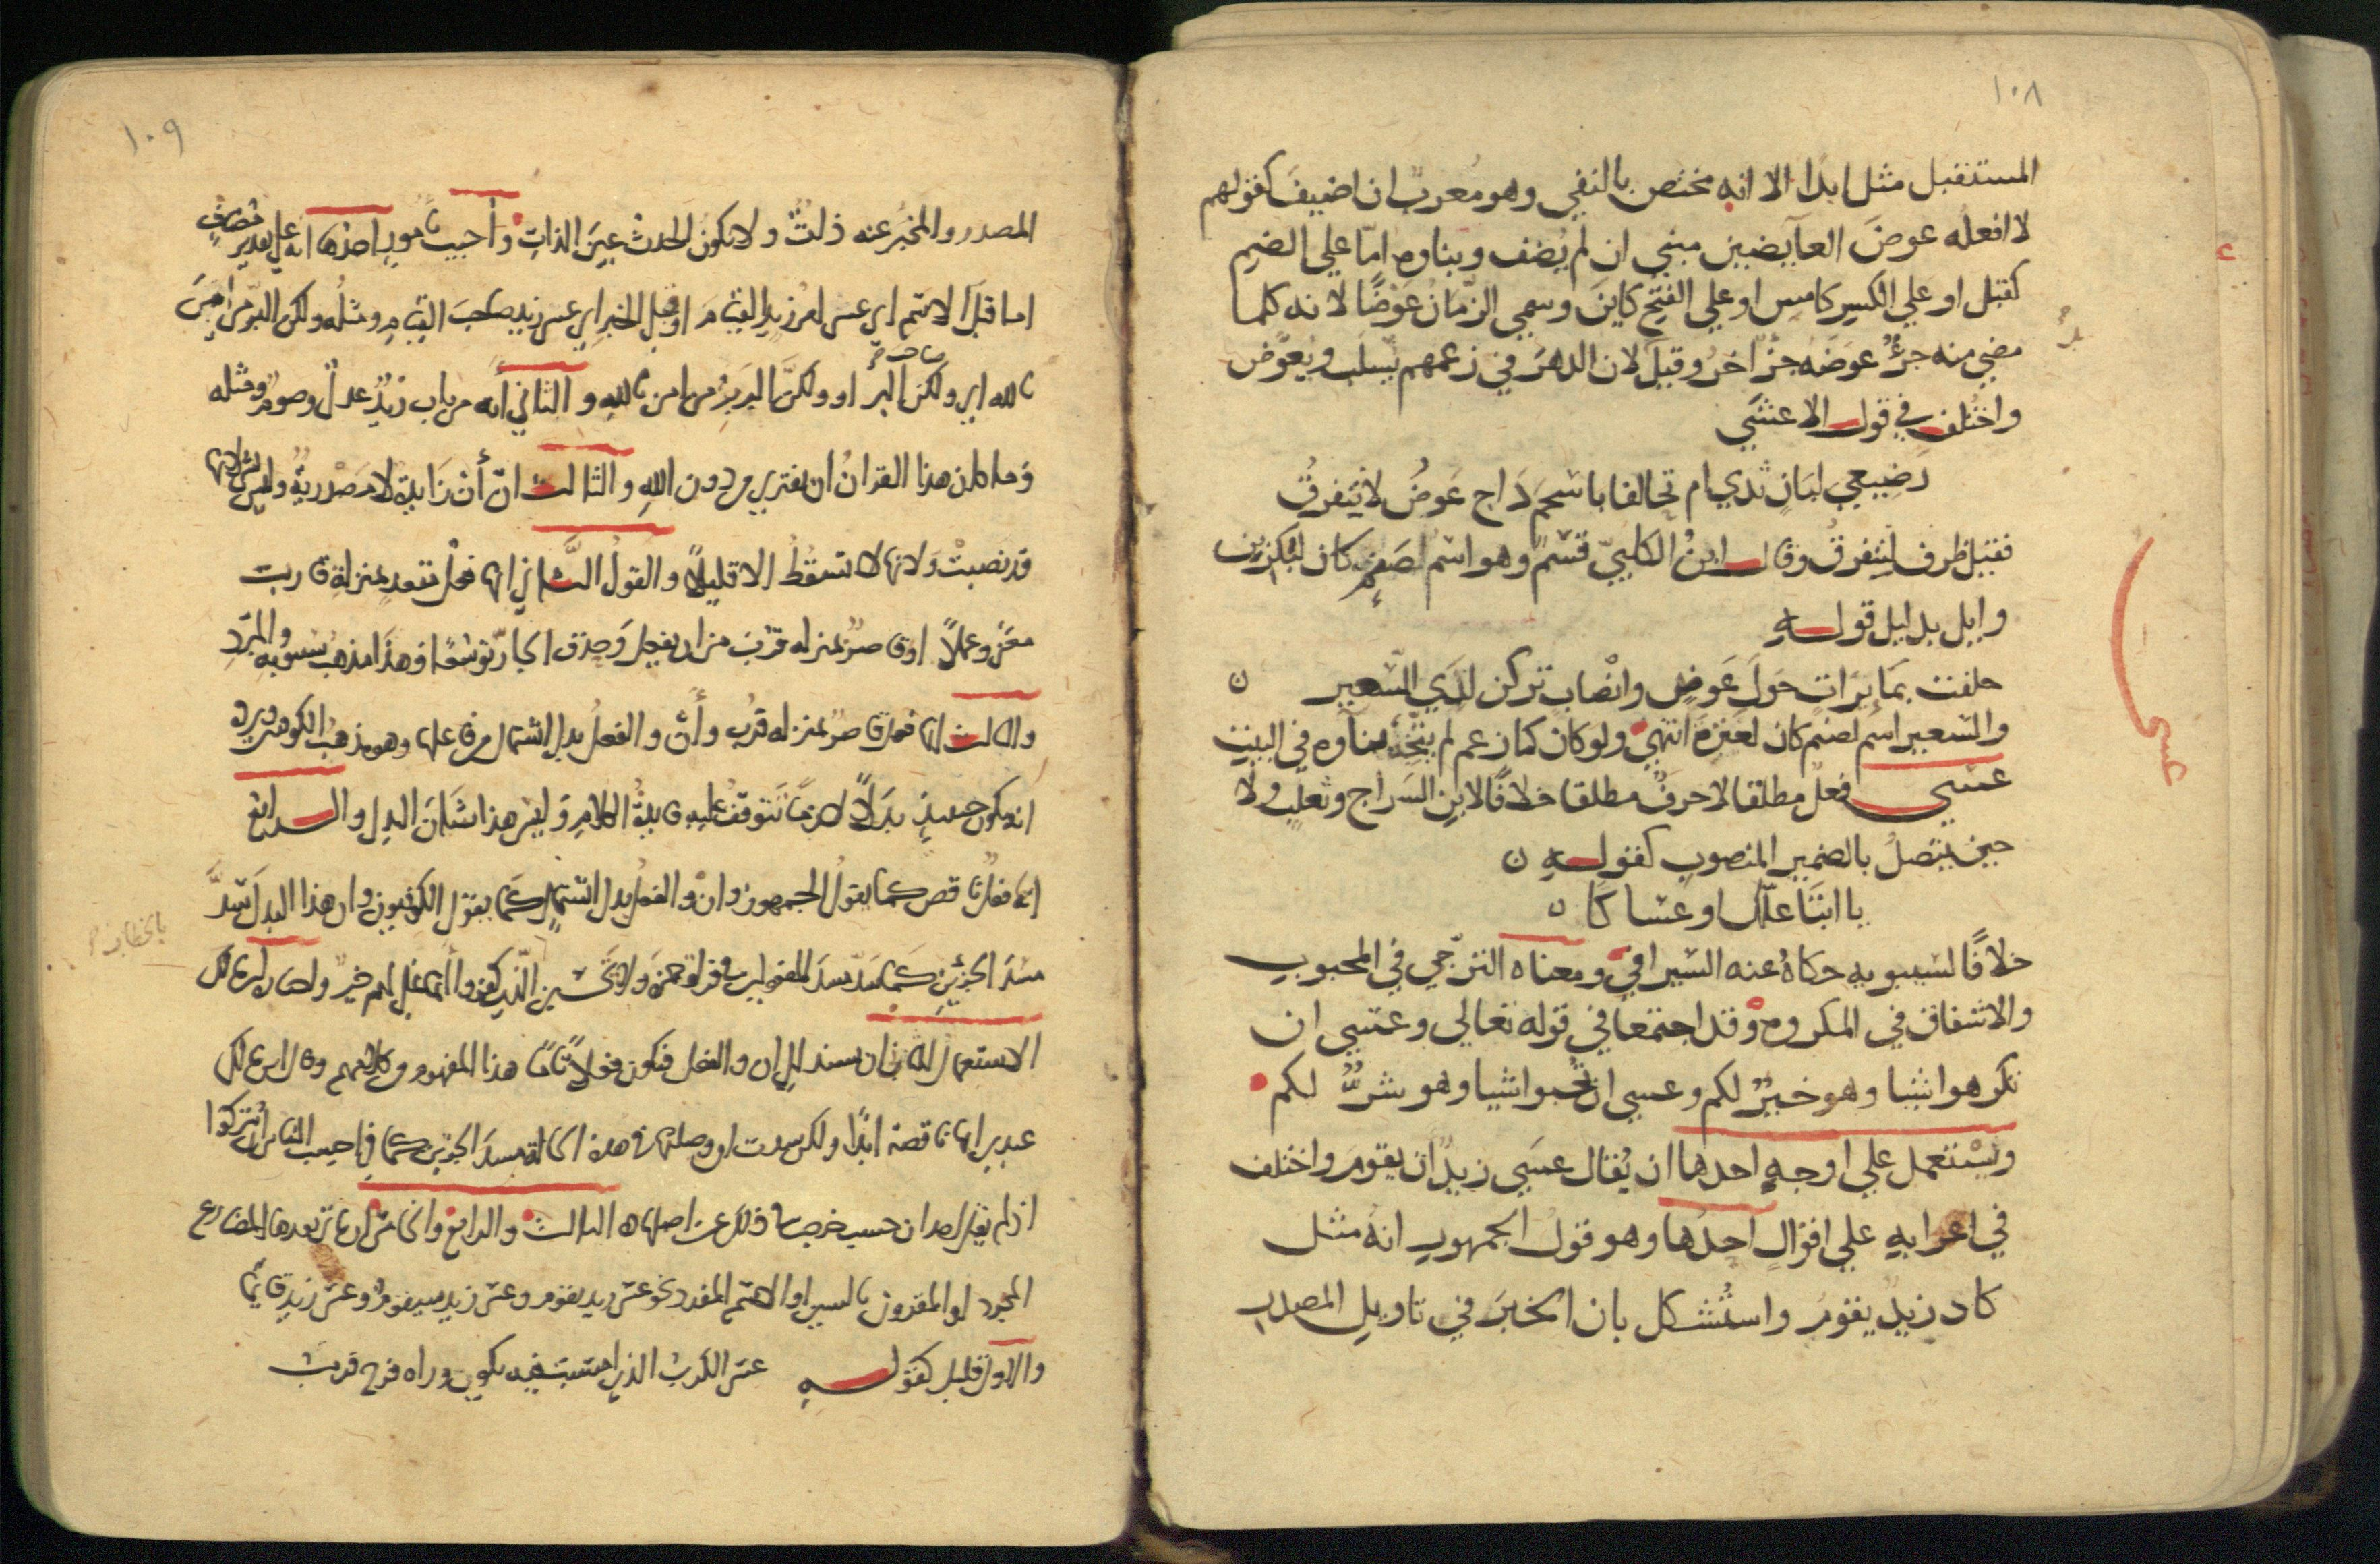 ١٠٨
المستقبل مثل ابدا الا انه مختص بالنفي وهو معرب ان اضيف كقولهم
لا افعله عوض العآيضين مبني ان لم يضف وبناوه اما علي الضم
كقبل او علي الكسر كامس او علي الفتح كاين وسمي الزمان عوضا لانه كلما
مضي منه جزؤ عوضه جزاخر وقيل لان الدهر في زعمهم يسلب ويعوض
واختلف في قول الاعشي
رضيعي لبان ثدي ام تحالفا باسحم داج عوض لا نتفرق
فقيل ظرف لنتفرق وقال ابن الكلبي قسم وهو اسم لصنم كان لبكر بن
وايل بدليل قوله
حلفت بمايرات حول عوض وانصاب تركن لدي السعير ن
والسعير اسم لصنم كان لعنزة انتهي ولو كان كما زعم لم يتجه بناوه في البيت
عسي فعل مطلقا لا حرف مطلقا خلافا لابن السراج وثعلب ولا
حين يتصل بالضمير المنصوب كقوله ن
يا ابتا علك او عساكا ن
خلافا لسيبويه حكاه عنه السيرافي ومعناه الترجي في المحبوب
والاشفاق في المكروه وقد اجتمعا في قوله تعالي وعسي ان
تكرهوا شيا وهو خير لكم وعسي ان تحبوا شيا وهو شر لكم
ويستعمل علي اوجه احدها ان يقال عسي زيد ان يقوم واختلف
في اعرابه علي اقوال احدها وهو قول الجمهور انه مثل
كاد زيد يقوم واستشكل بان الخبر في تاويل المصدر
عسي
١٠٩
المصدر والمخبر عنه ذات ولا يكون الحدث عين الذات واجيب بامور احدها انه علي تقدير مضاف
اما قبل الاسم اي عسي امر زيد القيام او قبل الخبر اي عسي زيد صاحب القيام ومثله ولكن البر من امن
بالله اي ولكن صاحب البر او ولكن البر بر من امن بالله والثاني انه من باب زيد عدل وصوم ومثله
وما كان هذا القران ان يفتري من دون الله والثالث ان أن زايدة لا مصدرية وليس بشي لانها
قد نصبت ولانها لا تسقط الا قليلا والقول الثاني انها فعل متعد بمنزلة قارب
معني وعملا او قاصر بمنزلة قرب من ان يفعل وحذف الجار توسعا وهذا مذهب سيبويه والمبرد
والثالث انها فعل قاصر بمنزلة قرب وأن والفعل بدل اشتمال من فاعلها وهو مذهب الكوفيين ويرده
انه يكون حينيذ بدلا لازما تتوقف عليه فايدة الكلام وليس هذا شان البدل والرابع
انها فعل ناقص كما يقول الجمهور وان والفعل بدل اشتمال كما يقول الكوفيون وان هذا البدل سد
مسد الجزئين كما سد مسد المفعولين في قراة حمزة ولا تحسبن الذين كفروا أنما نملي لهم خير واختاره ابن مالك
الاستعمال الثاني ان يسند الي ان والفعل فتكون فعلا تاما هذا المفهوم من كلامهم وقال ابن مالك
عندي انها ناقصة ابدا ولكن سدت ان وصلتها في هذه الحالة مسد الجزئين كما في احسب الناس ان يتركوا
اذ لم يقل احد ان حسب خرجت في ذلك عن اصلها الثالث والرابع والخامس ان ياتي بعدها المضارع
المجرد او المقرون بالسين او الاسم المفرد نحو عسي زيد يقوم وعسي زيد سيقوم وعسي زيد قايما
والاول قليل كقوله عسي الكرب الذي امسيت فيه يكون وراه فرج قريب
بالخطاب